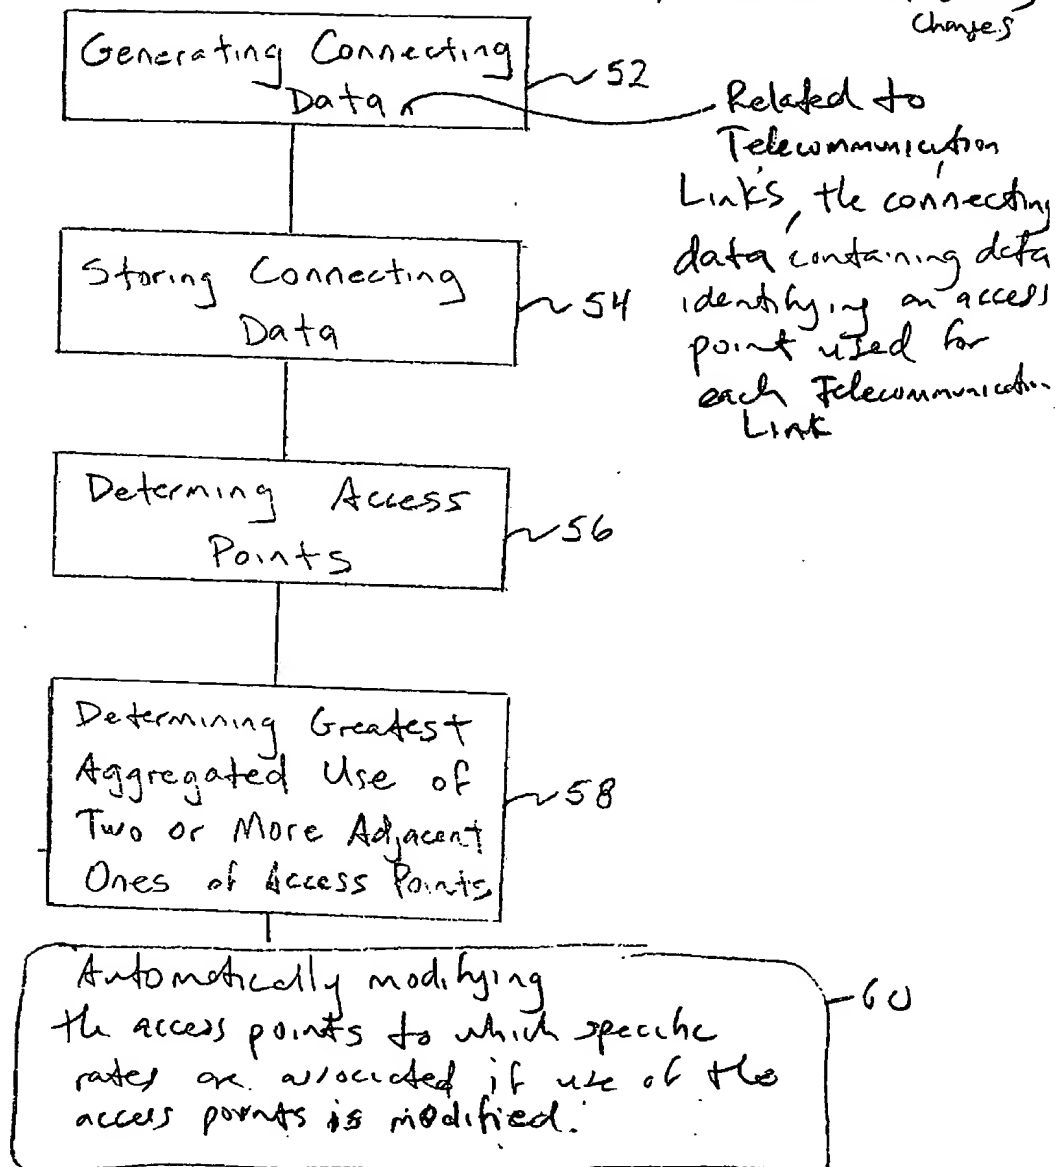 Changes
Generating Connecting
Data
52
Related to
Telecommunication
Links, the connecting
data containing data
identifying an access
point used for
each Telecommunication
Link
Storing Connecting
Data
54
Determing Access
Points
56
Determining Greatest
Aggregated Use of
Two or More Adjacent
Ones of Access Points
58
Automatically modifying
the access points to which specific
rates are associated if use of the
access points is modified.
60